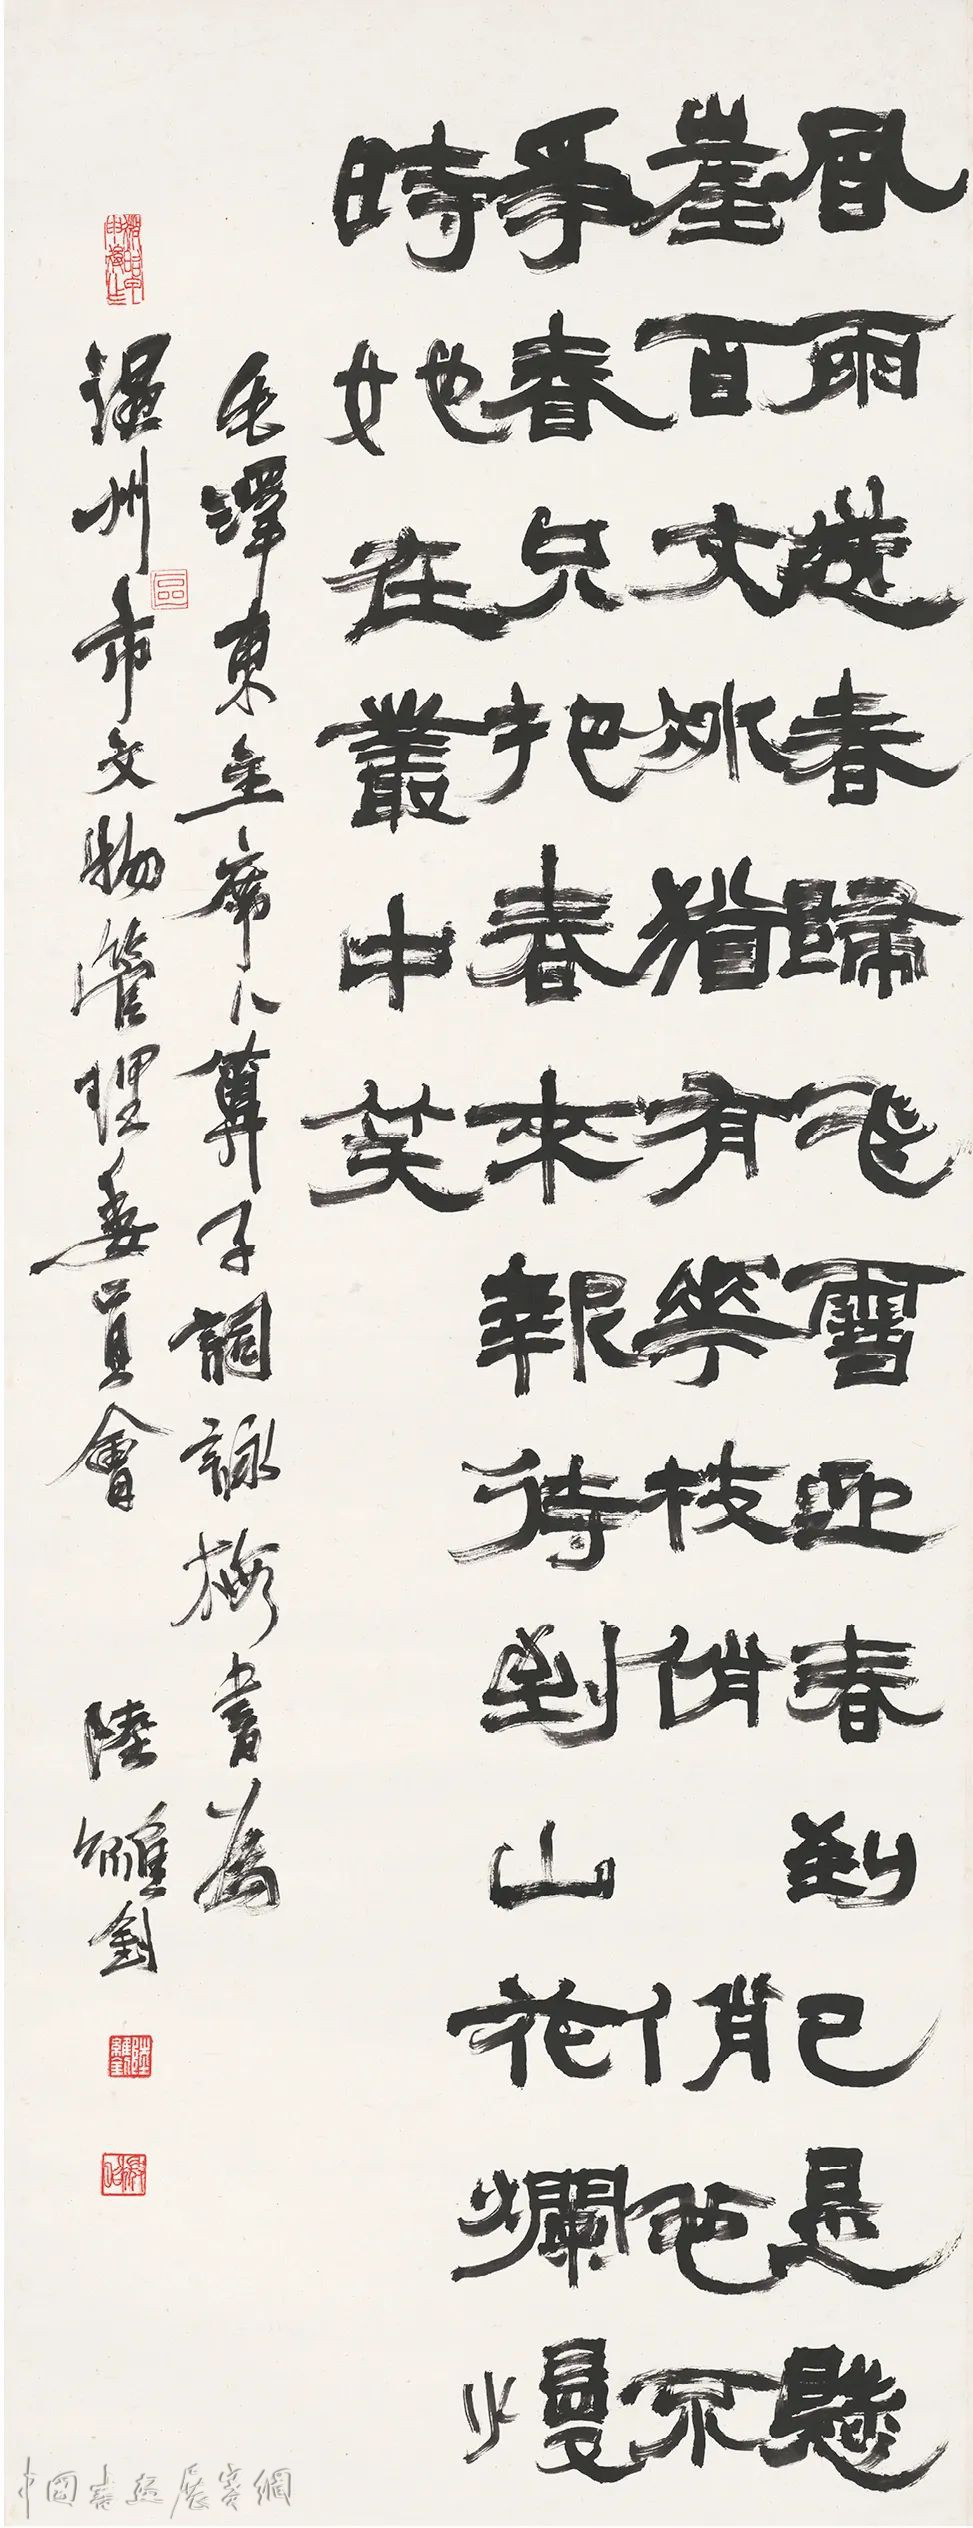 風雨送春歸飛雪迎春到已是懸
崖百丈冰猶有華枝俏俏也不
爭春只把春來報待到山花爛漫
時她在叢中笑
毛澤東主席卜算子詞詠梅書為
溫州市文物管理委員會 陸維釗
中國書畫展賽網